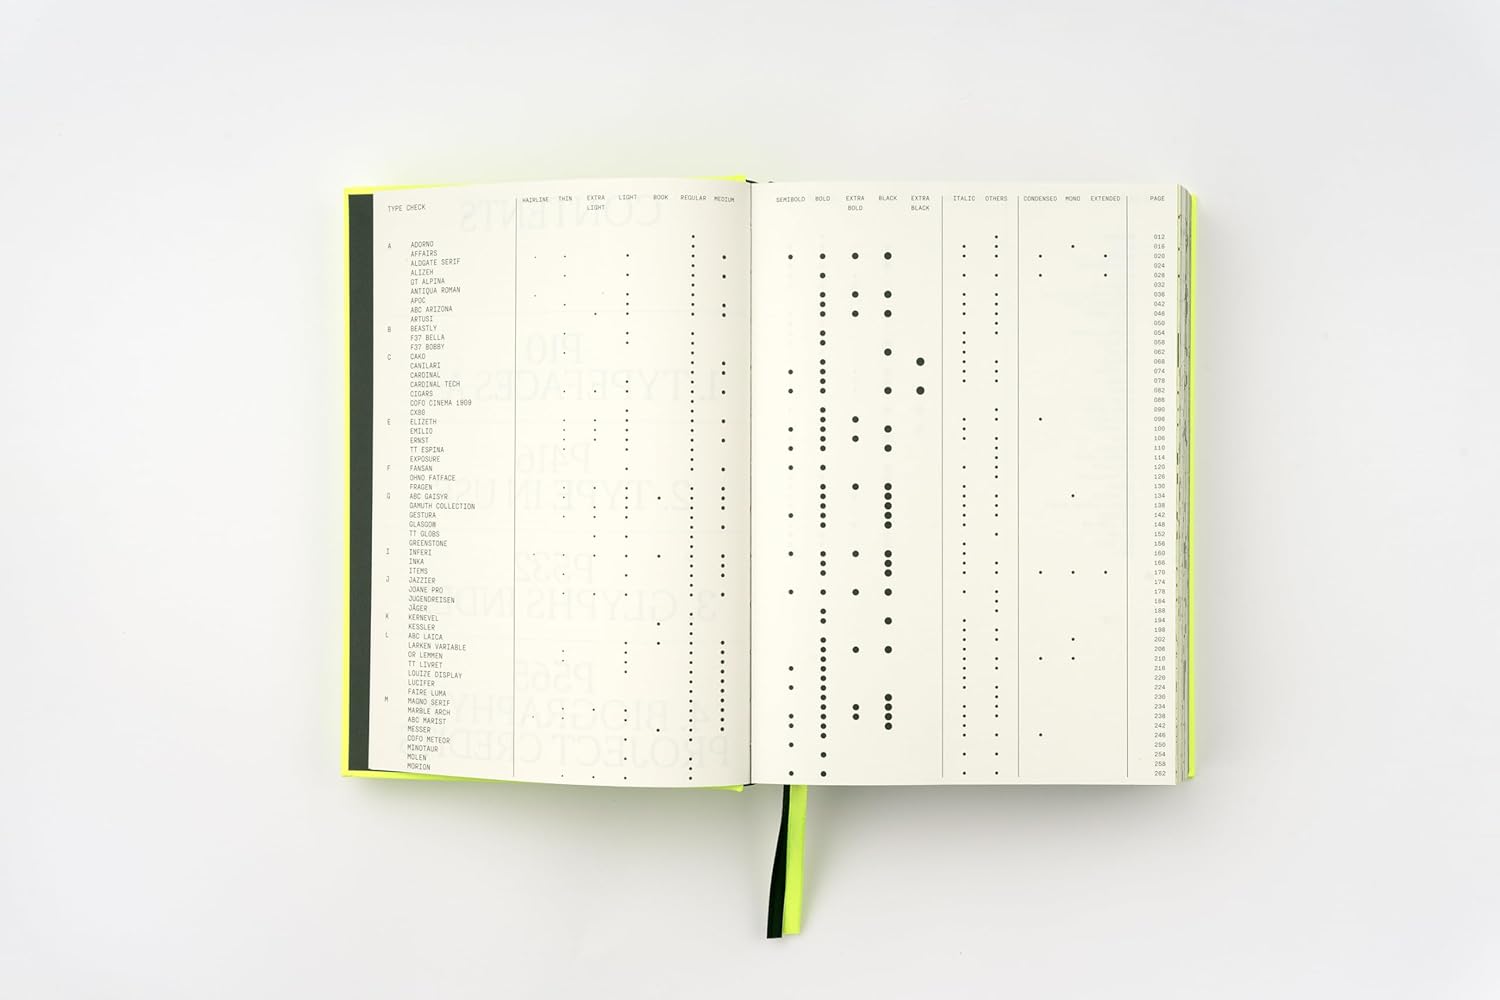 TYPE CHECK
HAIRLINE THIN EXTRA LIGHT LIGHT BOOK REGULAR MEDIUM
A ADORNO
AFFAIRS
ALDGATE SERIF
ALIZEH
GT ALPINA
ANTIQUA ROMAN
APOC
ABC ARIZONA
ARTUSI
B BEASTLY
F37 BELLA
F37 BOBBY
C CAKO
CANILARI
CARDINAL
CARDINAL TECH
CIGARS
COFO CINEMA 1909
CX80
E ELIZETH
EMILIO
ERNST
TT ESPINA
EXPOSURE
F FANSAN
OHNO FATFACE
FRAGEN
G ABC GAISYR
GAMUTH COLLECTION
GESTURA
GLASGOW
TT GLOBS
GREENSTONE
I INFERI
INKA
ITEMS
J JAZZIER
JOANE PRO
JUGENDREISEN
JÄGER
K KERNEVEL
KESSLER
L ABC LAICA
LARKEN VARIABLE
OR LEMMEN
TT LIVRET
LOUIZE DISPLAY
LUCIFER
FAIRE LUMA
M MAGNO SERIF
MARBLE ARCH
ABC MARIST
MESSER
COFO METEOR
MINOTAUR
MOLEN
MORION
SEMIBOLD BOLD EXTRA BOLD BLACK EXTRA BLACK ITALIC OTHERS CONDENSED MONO EXTENDED PAGE
012
016
020
024
028
032
036
042
046
050
054
058
062
068
074
078
082
088
090
096
100
106
110
114
120
126
130
134
138
142
148
152
156
160
166
170
174
178
184
188
194
198
202
206
210
216
220
224
230
234
238
242
246
250
254
258
262